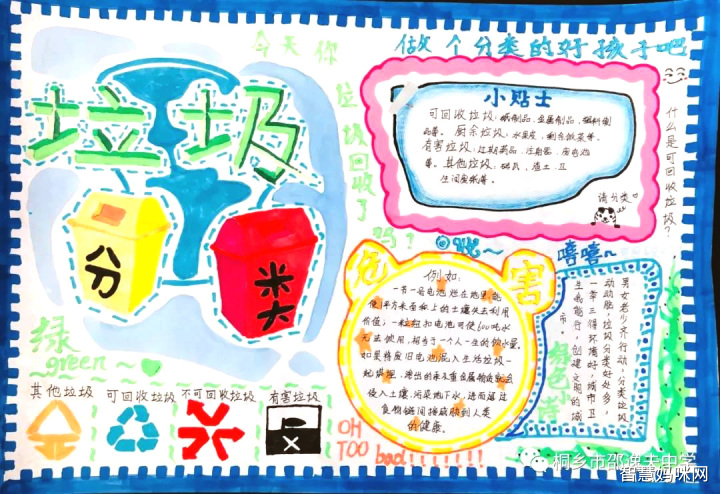 今天你
垃圾回收了
吗?
做个分类的好孩子吧
垃圾
分
类
绿
green
其他垃圾
可回收垃圾
不可回收垃圾
有害垃圾
小贴士
可回收垃圾:纸制品、金属制品、塑料制
品等。厨余垃圾:水果皮、剩余饭菜等。
有害垃圾:过期药品、注射器、废电池
等。其他垃圾:砖瓦、渣土、卫
生间废纸等。
请分类
什么是可回收垃圾?
危
害
例如:
一节一号电池烂在地里,能
使1平方米面积上的土壤失去利用
价值;一粒纽扣电池可使600吨水
无法使用,相当于一个人一生的饮水量。
如果将废旧电池混入生活垃圾一
起填埋,渗出的汞及重金属物质就会
侵入土壤,污染地下水,进而通过
食物链间接威胁到人类
的健康。
OH
TOO bad!!!!!!!
嘻嘻~
男女老少齐行动,分类垃圾
动动脑,垃圾分类好处多,
一举三得环境好,城市卫
生我能行,创建文明的城
市。
绿色
桐乡市邵逸夫中学
智慧妈咪网